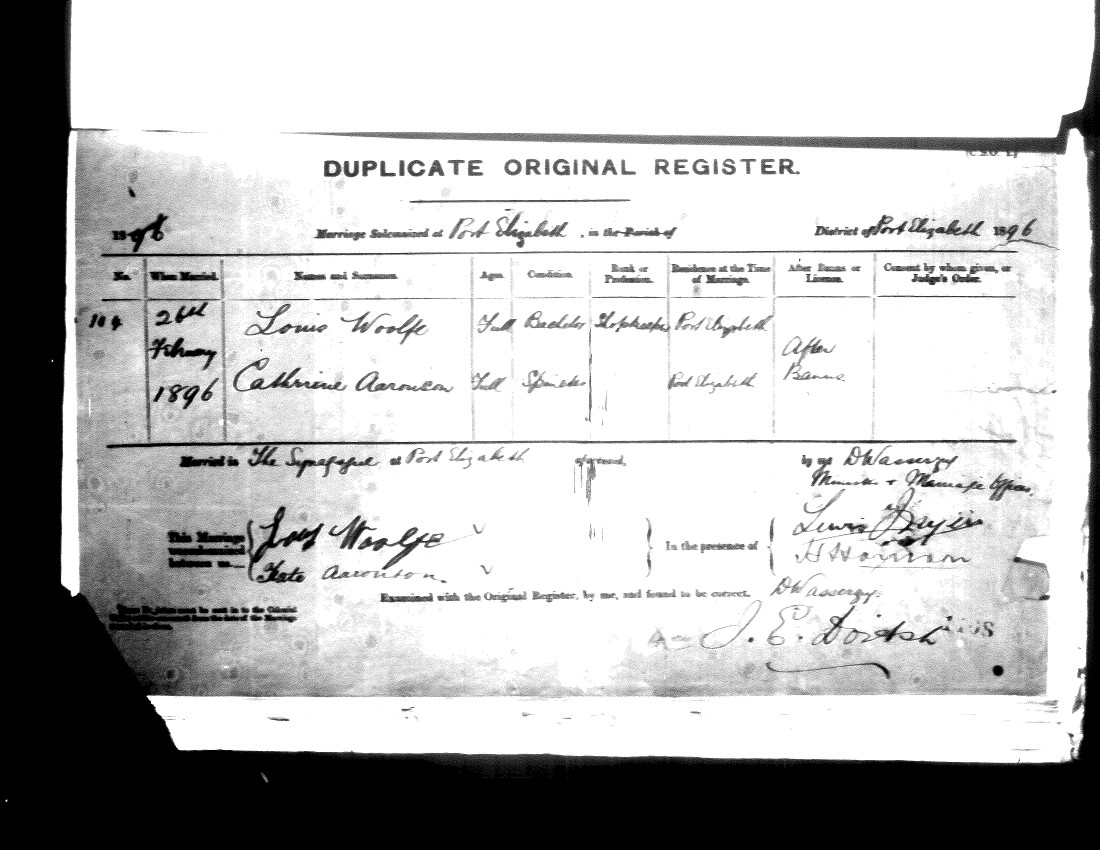 (C.S.O. 1.)
DUPLICATE ORIGINAL REGISTER.
1896 Marriage Solemnized at Port Elizabeth, in the Parish of District of Port Elizabeth 1896
No. When Married. Names and Surnames. Ages. Condition. Rank or Profession. Residence at the Time of Marriage. After Banns or Licence. Consent by whom given, or Judge's Order.
104 26th February 1896 Louis Woolfe Full Bachelor Shopkeeper Port Elizabeth After Banns.
Cathrine Aaronson Full Spinster Port Elizabeth
Married in The Synagogue at Port Elizabeth by me D Wasserzug
Minister & Marriage Officer.
This Marriage was solemnized between us,— Woolfe In the presence of Lewis
Kate Aaronson.
Examined with the Original Register, by me, and found to be correct. D Wasserzug.
J. E.